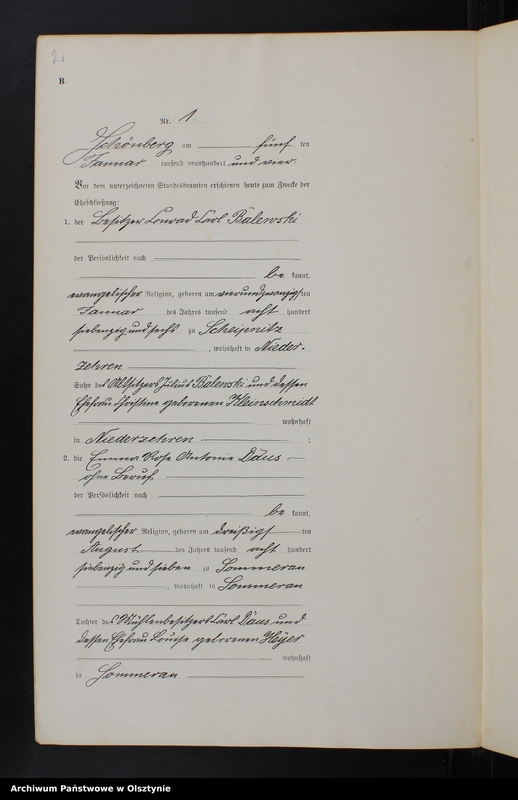 2
B.
Nr. 1.
Schönberg am fünf ten
Januar tausend neunhundert und vier.
Vor dem unterzeichneten Standesbeamten erschienen heute zum Zwecke der
Eheschließung:
1. der Besitzer Conrad Carl Balewski
der Persönlichkeit nach
be kannt,
evangelischer Religion, geboren am vierundzwanzigsten
Januar des Jahres tausend acht hundert
siebenzig und sechs zu Scheipnitz
, wohnhaft in Nieder-
zehren
Sohn des Altsitzers Julius Balewski und dessen
Ehefrau Christine geborenen Kleinschmidt
wohnhaft
in Niederzehren ;
2. die Emma Rosa Antonie Däus
ohne Beruf
der Persönlichkeit nach
be kannt,
evangelischer Religion, geboren am dreißigs ten
August des Jahres tausend acht hundert
siebenzig und sieben zu Sommerau
, wohnhaft in Sommerau
Tochter des Mühlenbesitzers Carl Däus und
dessen Ehefrau Louise geborenen Heyer
wohnhaft
in Sommerau
Archiwum Państwowe w Olsztynie